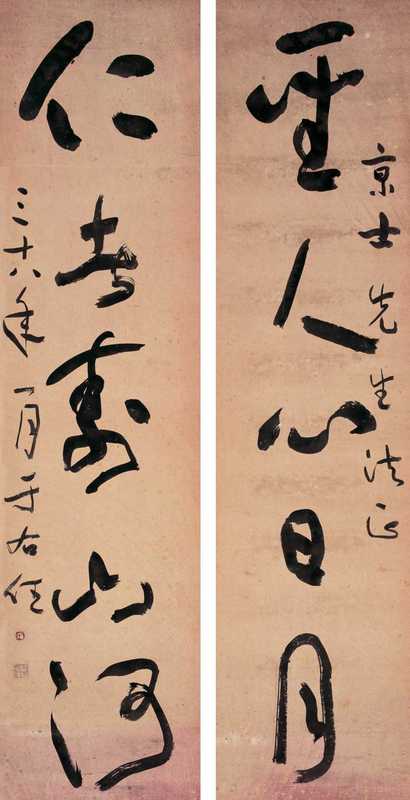 京士先生法正
聖人心日月
仁者壽山河
三十八年一月于右任